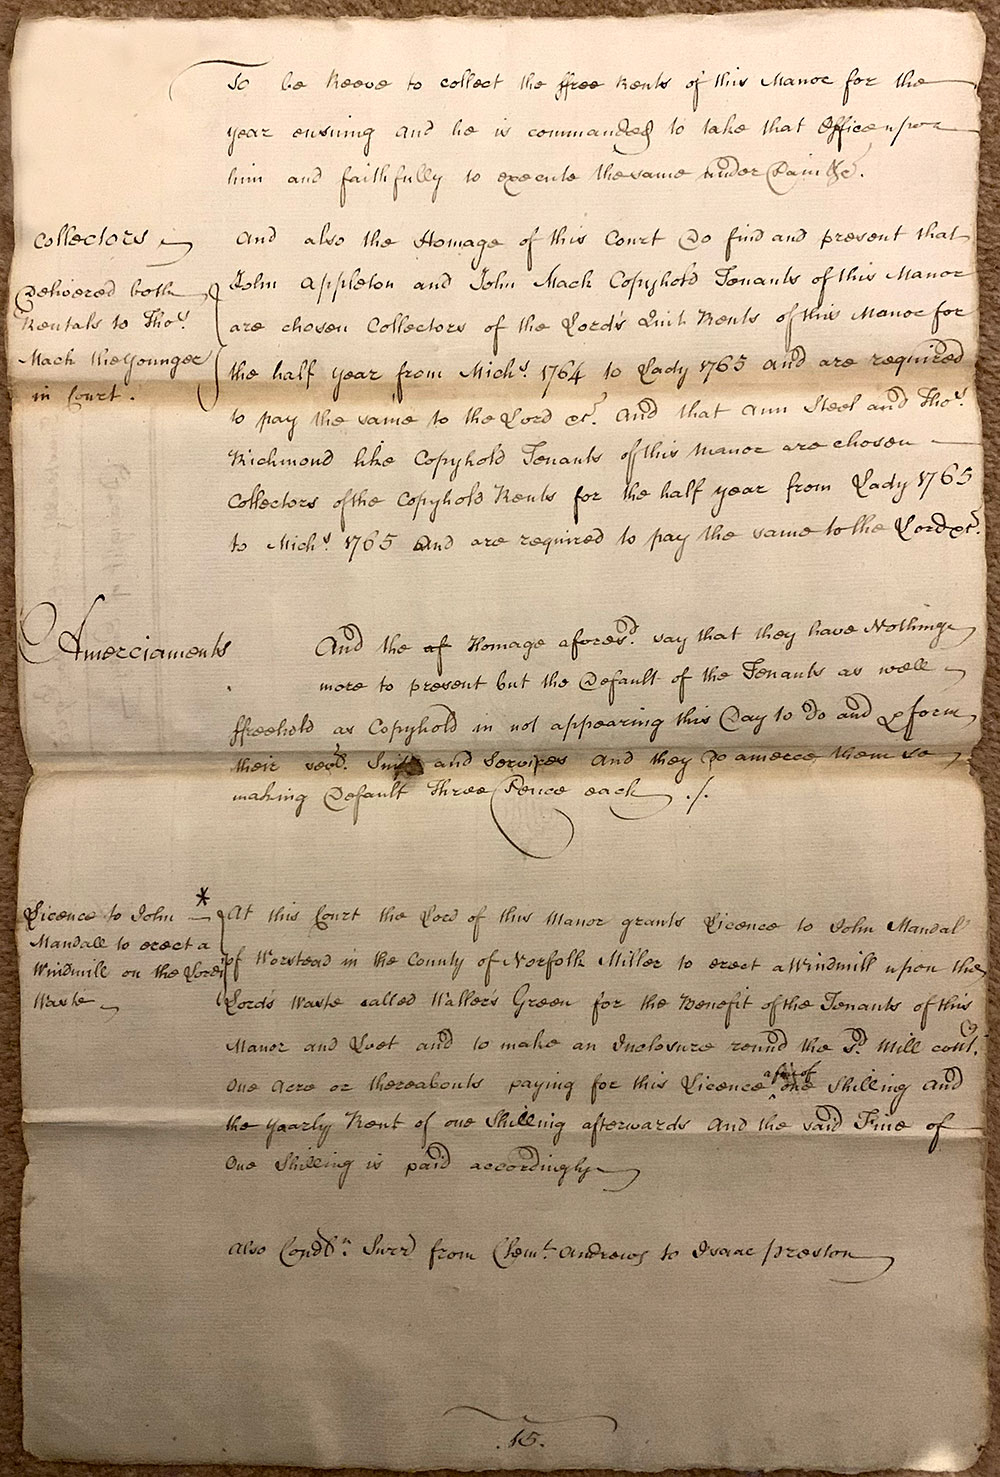 To be Reeve to collect the ffree Rents of this Manor for the
year ensuing and he is commanded to take that Office upon
him and faithfully to execute the same under Pain &c.
Collectors
And also the Homage of this Court Do find and present that
Delivered both
John Appleton and John Mack Copyhold Tenants of this Manor
Rentals to Thos.
are chosen Collectors of the Lord's Quit Rents of this Manor for
Mack the Younger
the half year from Michs. 1764 to Lady 1765 and are required
in Court.
to pay the same to the Lord &c. And that Ann Steel and Thos.
Richmond like Copyhold Tenants of this Manor are chosen
Collectors of the Copyhold Rents for the half year from Lady 1765
to Michs. 1765 And are required to pay the same to the Lord &c.
Amerciaments
And the af Homage afores'd. say that they have Nothing
more to present but the Default of the Tenants as well
ffreehold as Copyhold in not appearing this Day to do and pform
their sevl. Suits and Services And they Do amerce them so
making Default Three Pence each ./.
*
Licence to John
At this Court the Lord of this Manor grants Licence to John Mandal
Mandall to erect a
of Worstead in the County of Norfolk Miller to erect a Windmill upon the
Windmill on the Lords
Lord's Waste called Waller's Green for the Benefit of the Tenants of this
Waste
Manor and Leet and to make an Inclosure round the sd. Mill cont.
One Acre or thereabouts paying for this Licence ^ a fine of one Shilling and
the yearly Rent of one Shilling afterwards And the said Fine of
One Shilling is paid accordingly
Also Condl. Surr from Clemt. Andrews to Isaac Preston
.15.